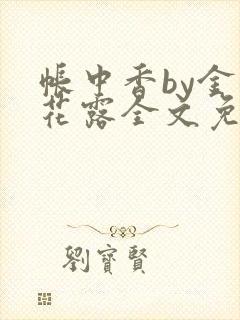 帐中香by金
花露全文免
劉寶賢